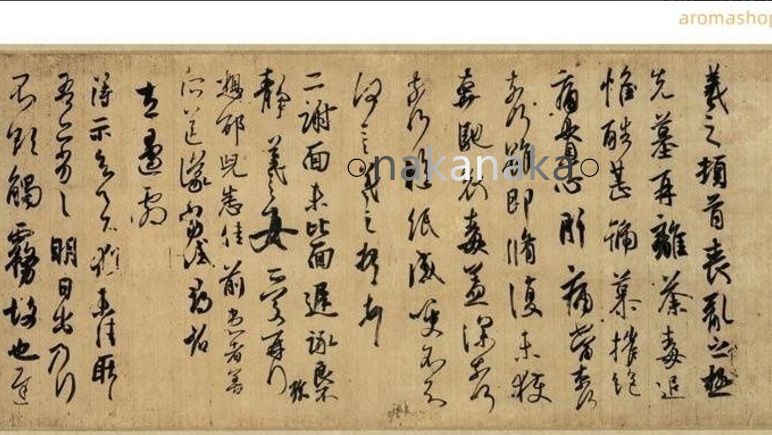 aromashop
羲之頓首喪亂之極
先墓再離荼毒追
惟酷甚號慕摧絕
痛貫心肝痛當奈何
奈何雖即脩復未獲
奔馳哀毒益深奈何
奈何臨紙感哽不知
何言羲之頓首
二謝面未比面遲詠良
靜羲之女愛再拜
想邰兒悉佳前患者善
所送議當試尋省
左邊劇
得示知足下猶未佳耿
吾亦劣劣明日出乃行
不欲觸霧故也遲
○nakanaka○